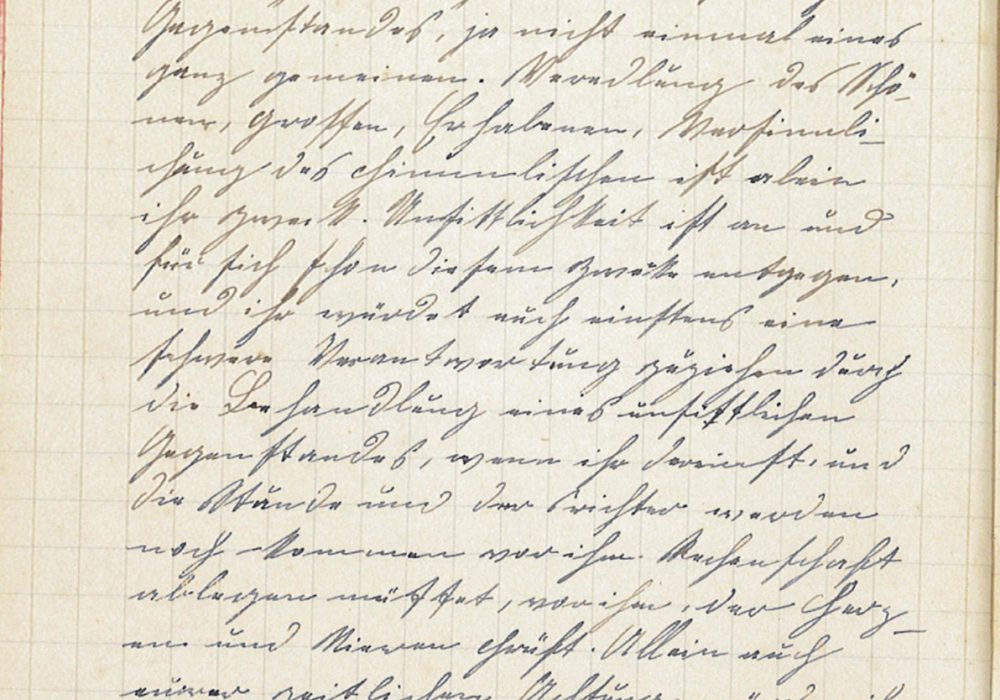 Gegenstandes, ja nicht einmal eines
ganz gemeinen. Veredlung des Schö-
nen, Grossen, Erhabenen, Versinnli-
chung des himmlischen ist alein
ihr Zweck. Unsittlichkeit ist an und
für sich schon diesem Zweke entgegen,
und ihr würdet euch einstens eine
schwere Verantwortung zuziehen durch
die Behandlung eines unsittlichen
Gegenstandes, wenn ihr dereinst, und
die Stunde und der Richter werden
noch kommen vor ihm Rechenschaft
ablegen müsstet, vor ihm, der Herz-
en und Nieren prüft. Allein auch
eurer zeitlichen Achtung